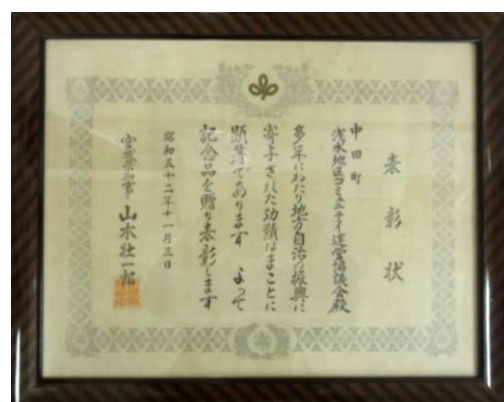 表彰状
中田町
浅水地区コミュニテイ運営協議会殿
多年にわたり地方自治の振興に
寄与された功績はまことに
顕著であります よって
記念品を贈り表彰します
昭和五十二年十一月三日
宮城県知事 山本壮一郎